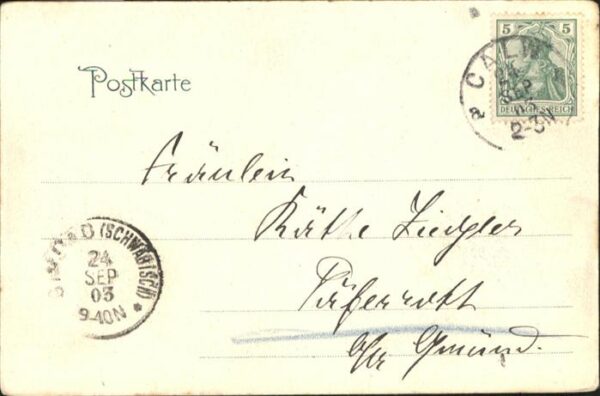 Postkarte
5 5
DEUTSCHES REICH
CALW
24
SEP
03
2-3N
a
Fräulein
Käthe Ziegler
Täferrott
O/A Gmünd.
GMÜND (SCHWÄBISCH)
24
SEP
03
9-10N